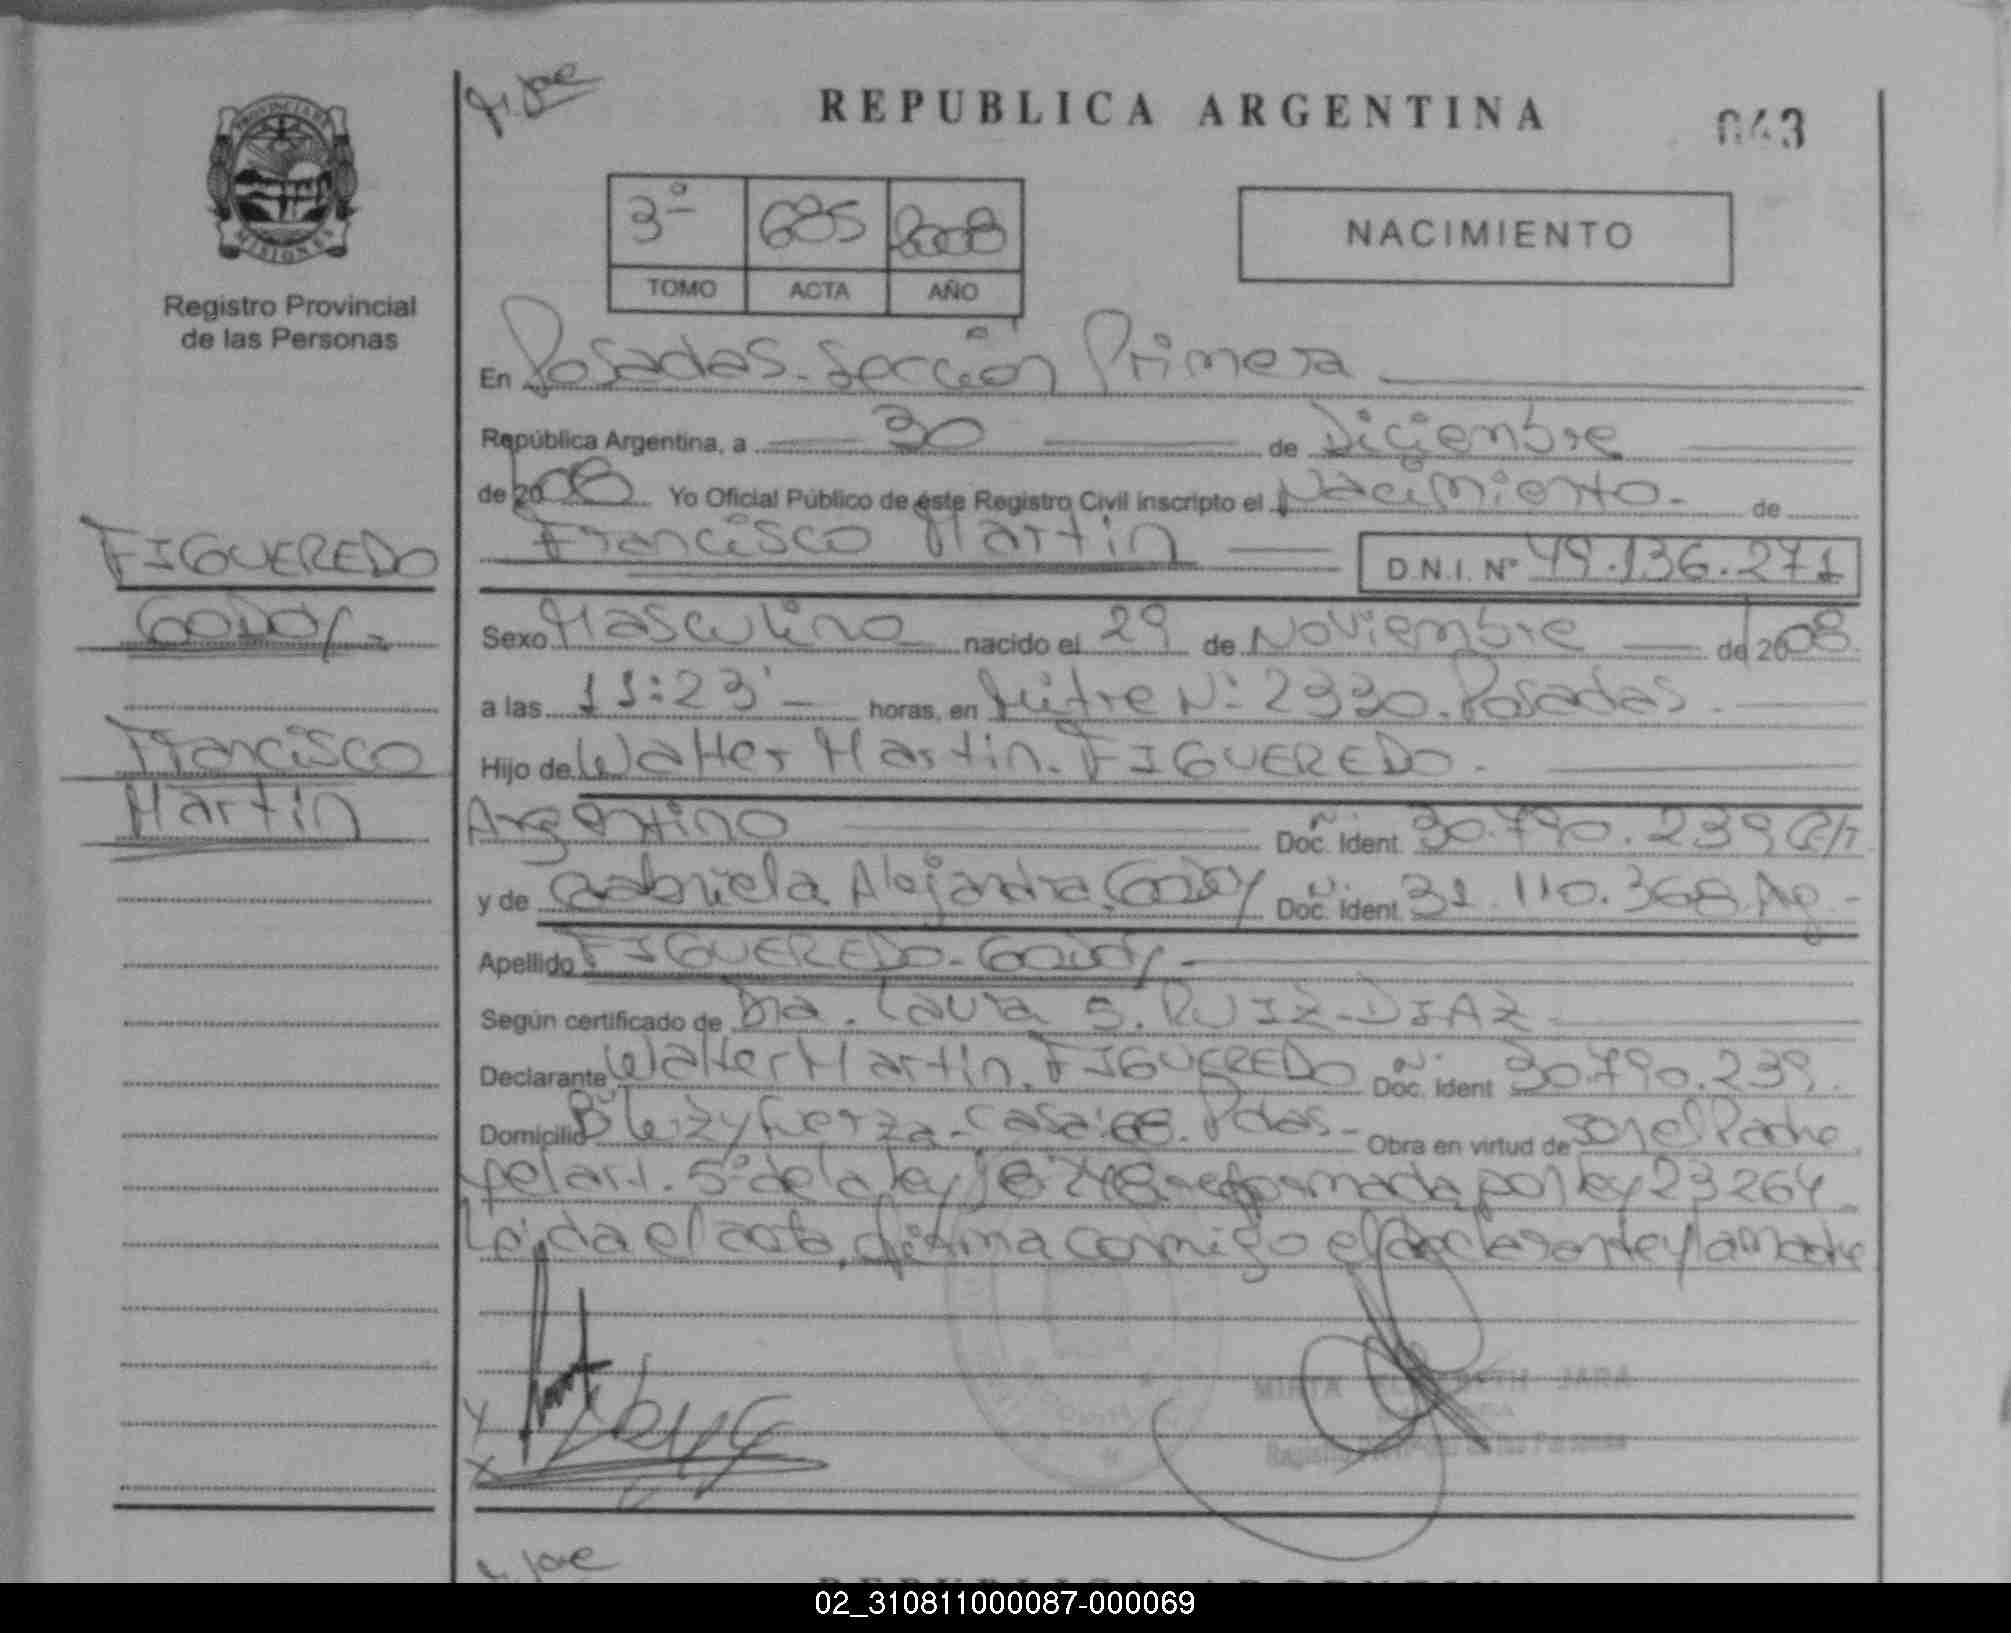 REPUBLICA ARGENTINA
043
PROVINCIA DE
MISIONES
Registro Provincial
de las Personas
3º 685 2008
TOMO ACTA AÑO
NACIMIENTO
En Posadas - Sección Primera
República Argentina, a 30 de Diciembre
de 2008 Yo Oficial Público de éste Registro Civil inscripto el Nacimiento - de
Francisco Martin D.N.I. Nº 49.136.271
FIGUEREDO
GODOY -
Francisco
Martin
Sexo Masculino nacido el 29 de Noviembre de 2008
a las 11:23' - horas, en Mitre Nº 2330. Posadas.
Hijo de Walter Martin. FIGUEREDO -
Argentino Doc. Ident. Nº 30.790.239
y de Gabriela Alejandra Godoy Doc. Ident. Nº 31.110.368 Ag -
Apellido FIGUEREDO - GODOY -
Según certificado de Dra. Laura S. RUIZ - DIAZ -
Declarante Walter Martin. FIGUEREDO Doc. Ident Nº 30.790.239.
Domicilio Bº Luz y Fuerza - Casa: 68. Pdas - Obra en virtud de son el Padre
y el art. 5º de la ley 18248 reformada por ley 23264
Leida el acta, firma conmigo el declarante y la madre
MIRTA ELIZABETH JARA
Registro Provincial de las Personas
02_310811000087-000069